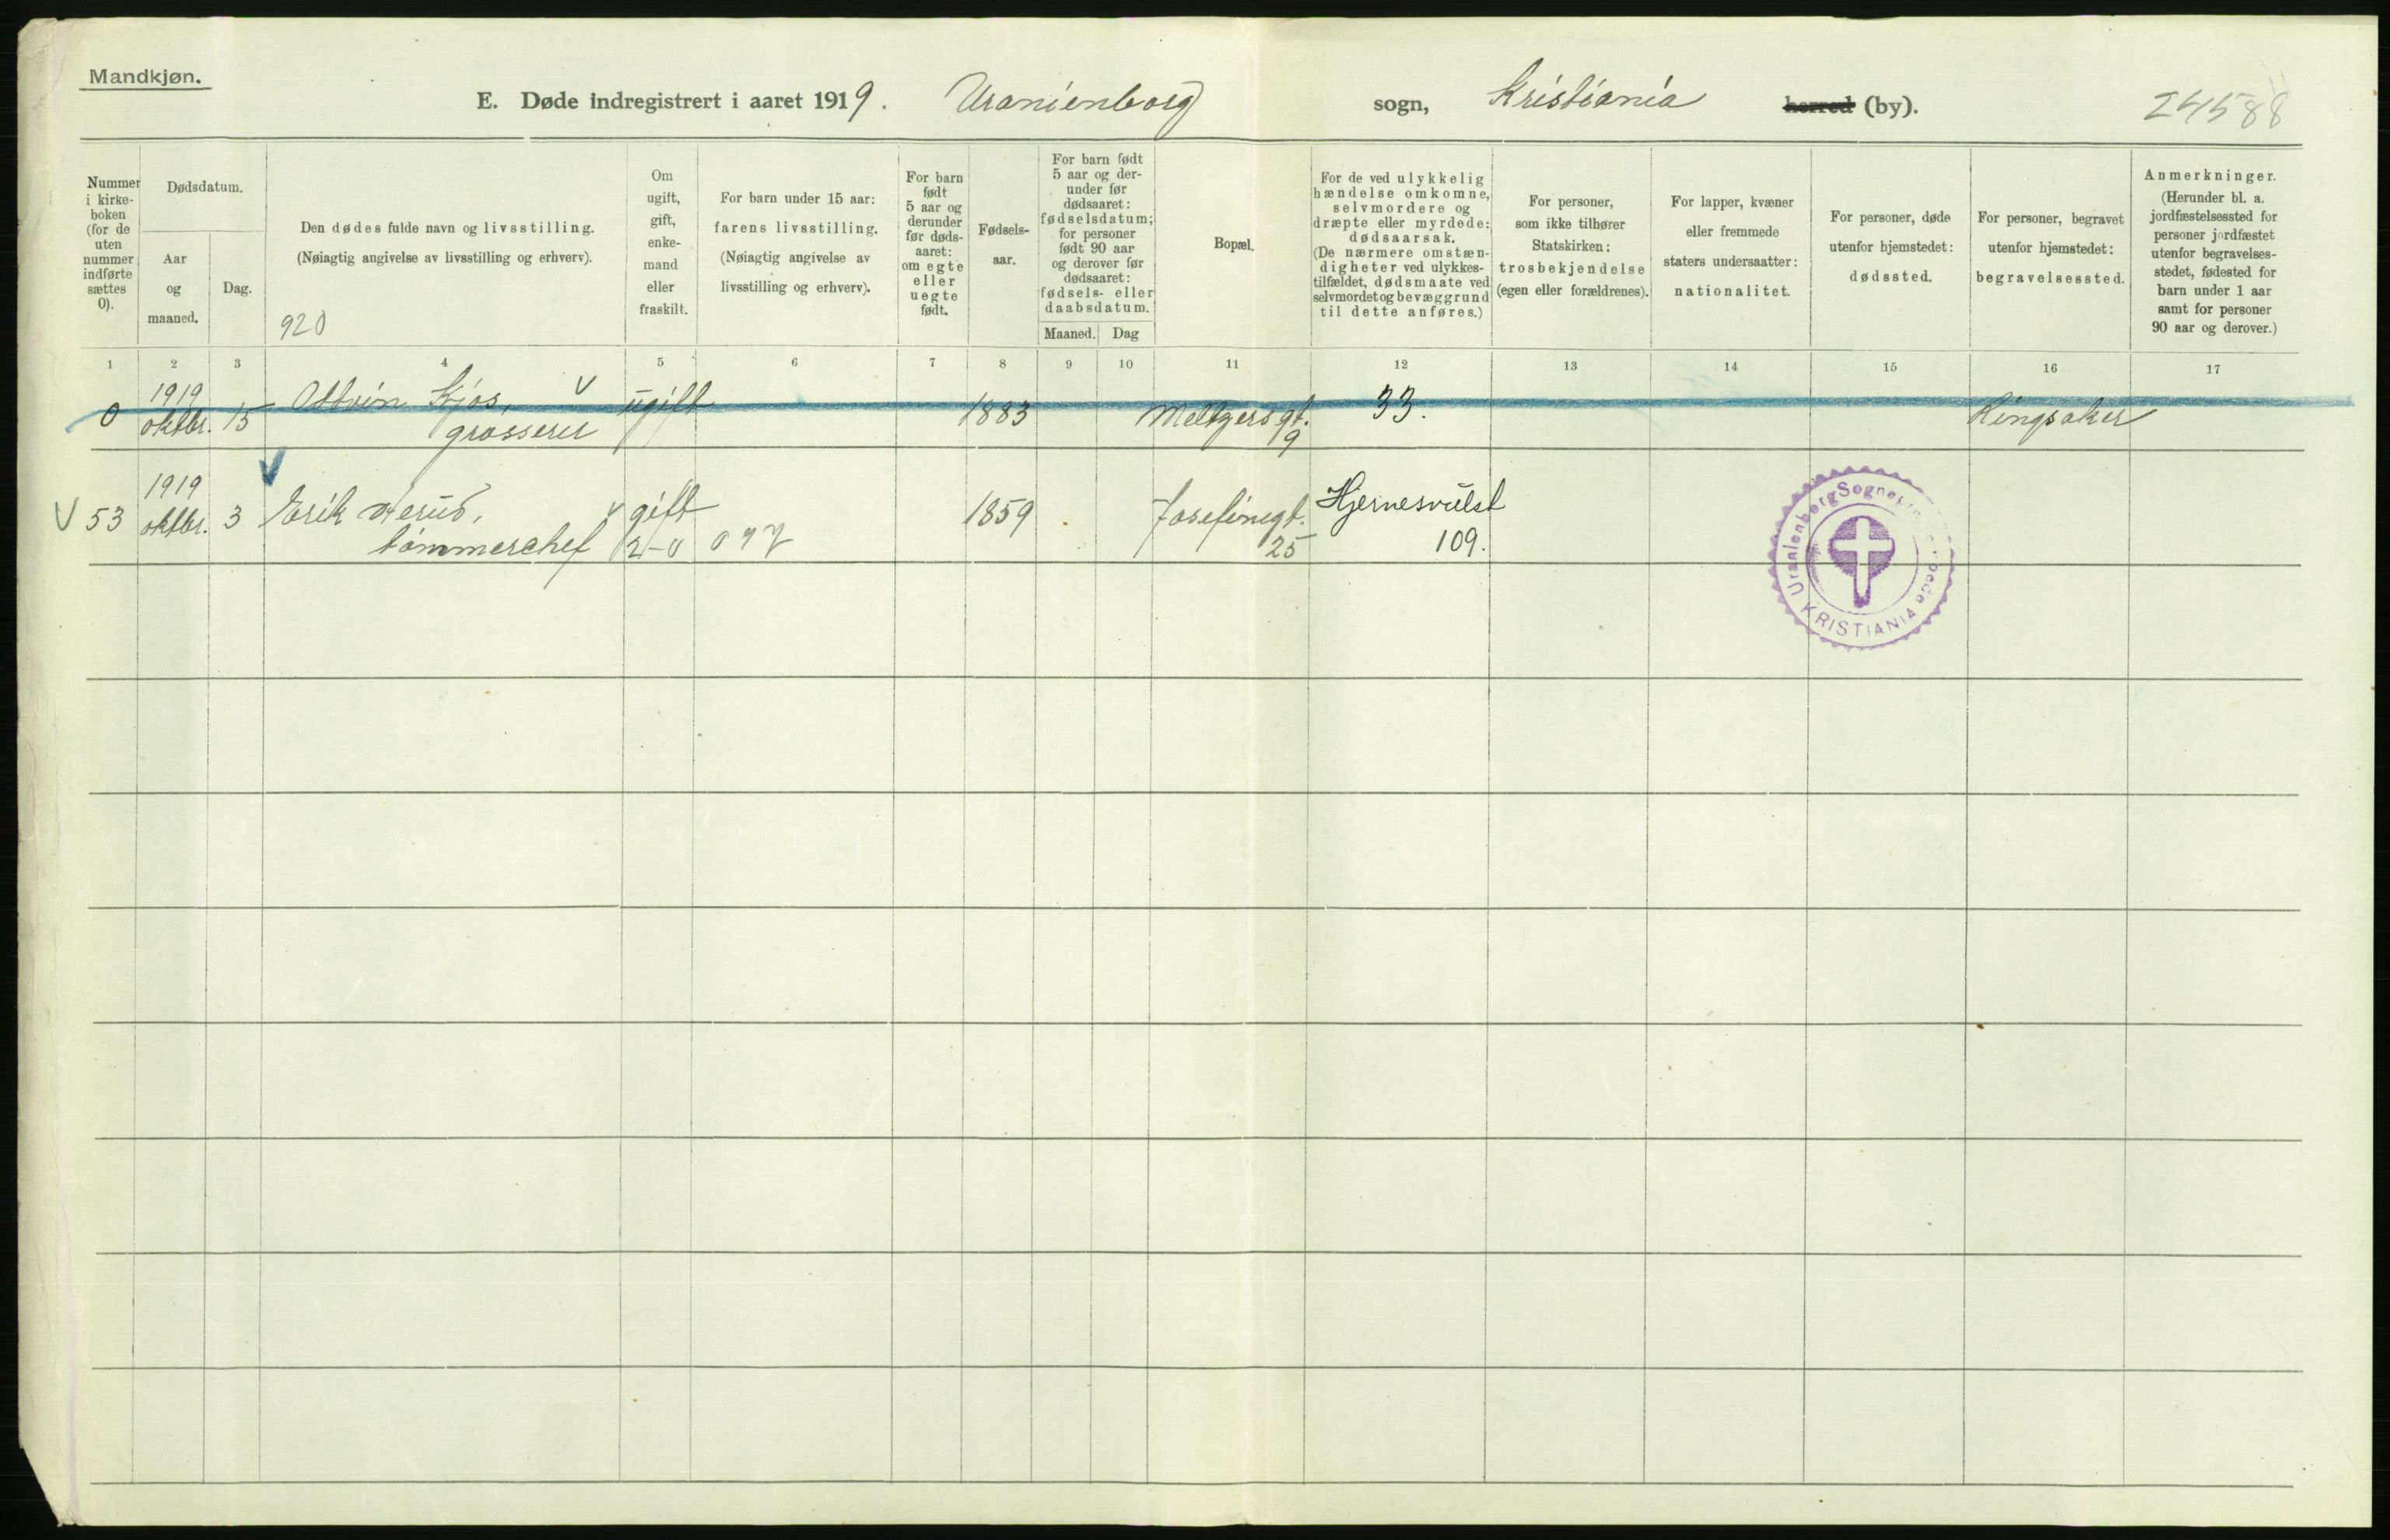 Mandkjøn.
E. Døde indregistrert i aaret 1919. Uranienborg sogn, Kristiania herred (by). 24588
Nummer i kirke-boken (for de uten nummer indførte sættes 0).
Dødsdatum.
Aar og maaned.
Dag.
Den dødes fulde navn og livsstilling.
(Nøiagtig angivelse av livsstilling og erhverv).
920
Om ugift, gift, enke-mand eller fraskilt.
For barn under 15 aar:
farens livsstilling.
(Nøiagtig angivelse av livsstilling og erhverv).
For barn født 5 aar og derunder før døds-aaret: om egte eller uegte født.
Fødsels-aar.
For barn født 5 aar og der-under før dødsaaret: fødselsdatum; for personer født 90 aar og derover før dødsaaret: fødsels- eller daabsdatum.
Maaned. Dag
Bopæl.
For de ved ulykkelig hændelse omkomne, selvmordere og dræpte eller myrdede: dødsaarsak.
(De nærmere omstæn-digheter ved ulykkes-tilfældet, dødsmaate ved selvmordet og bevæggrund til dette anføres.)
For personer, som ikke tilhører Statskirken: trosbekjendelse (egen eller forældrenes).
For lapper, kvæner eller fremmede staters undersaatter: nationalitet.
For personer, døde utenfor hjemstedet: dødssted.
For personer, begravet utenfor hjemstedet: begravelsessted.
Anmerkninger.
(Herunder bl. a. jordfæstelsessted for personer jordfæstet utenfor begravelses-stedet, fødested for barn under 1 aar samt for personer 90 aar og derover.)
1 2 3 4 5 6 7 8 9 10 11 12 13 14 15 16 17
1919
0 oktbr. 15 Kjos, ugift 1883 Meltzersgt. 33. Ringsaker
grosserer 9
1919
53 oktbr. 3 Erik gift 1859 Josefinegt. Hjernesvulst
tømmerchef 2-0 097 25 109.
Uranienborg
KRISTIANIA